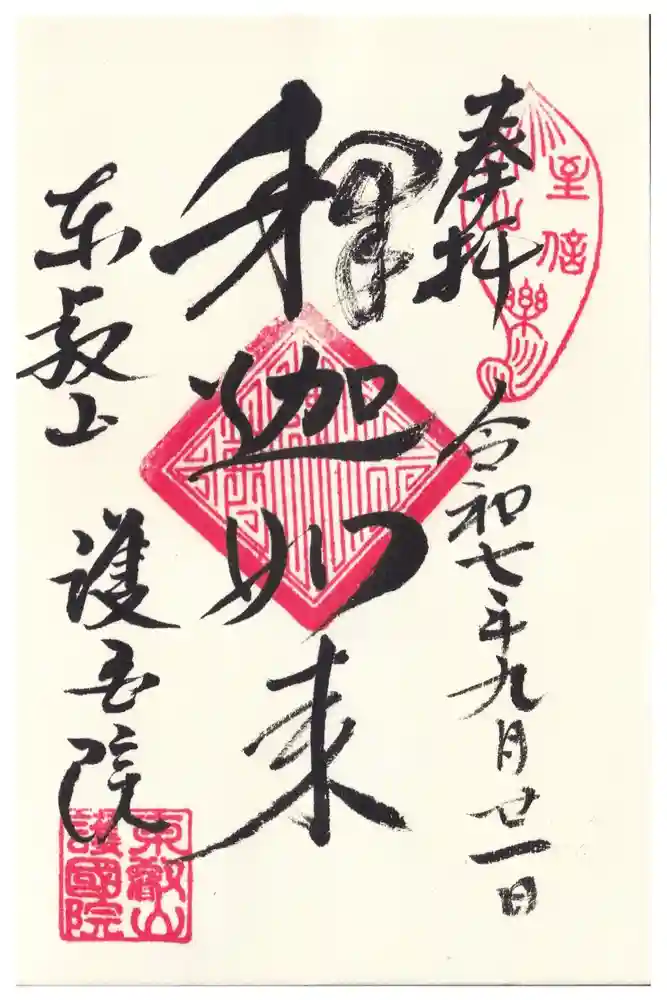 奉拝
至信樂
令和七年九月廿一日
釋迦如来
東叡山
護国院
東叡山
護國院